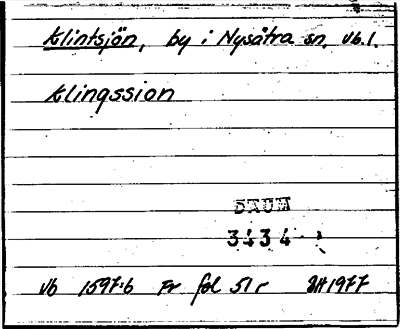 Klintsjön, by i Nysätra sn, Vb.l.
Klingssion
DAUM
3434
Vb 1597:6 Pr fol 51r SH 1977